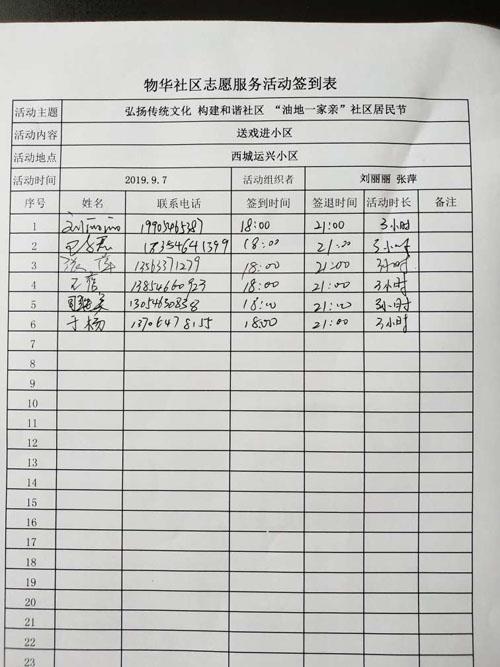 物华社区志愿服务活动签到表
活动主题 弘扬传统文化 构建和谐社区 “油地一家亲”社区居民节
活动内容 送戏进小区
活动地点 西城运兴小区
活动时间 2019.9.7 活动组织者 刘丽丽 张萍
序号 姓名 联系电话 签到时间 签退时间 活动时长 备注
1 刘丽丽 18:00 21:00 3小时
2 18:00 21:00 3小时
3 张萍 13563371279 18:00 21:00 3小时
4 13854660923 18:00 21:00 3小时
5 18:00 21:00 3小时
6 于杨 13706478155 18:00 21:00 3小时
7
8
9
10
11
12
13
14
15
16
17
18
19
20
21
22
23